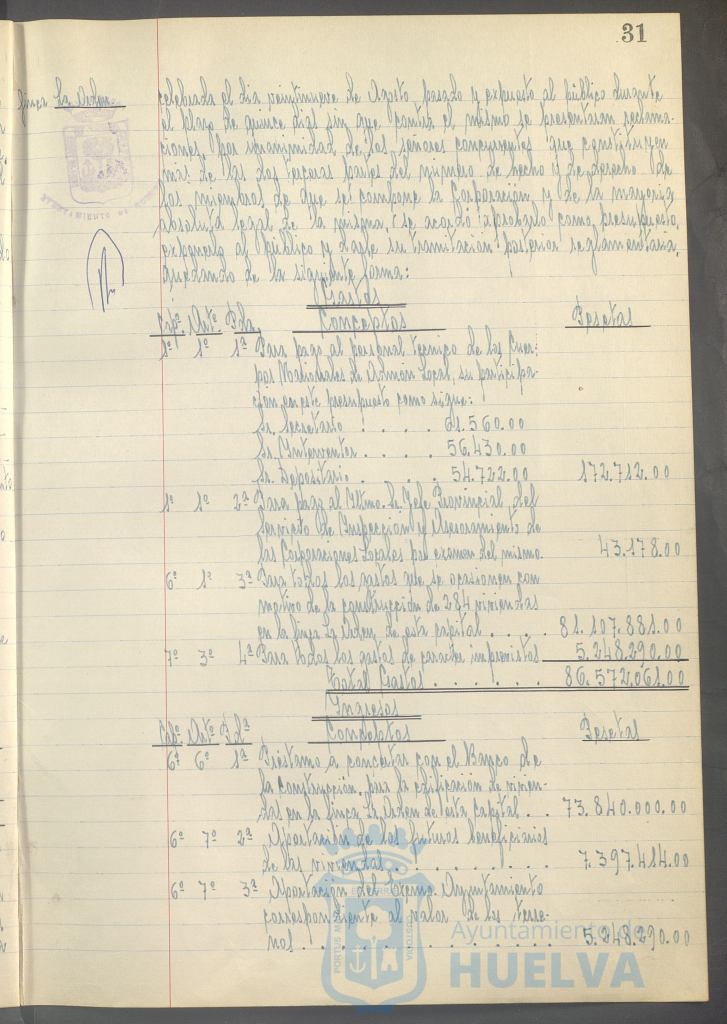 31
finca La Orden.
celebrada el dia veintinueve de Agosto pasado y expuesto al público durante
el plazo de quince dias sin que contra el mismo se presentaran reclama-
ciones, por unanimidad de los señores concurrentes que constituyen
mas de las dos terceras partes del número de hecho y de derecho de
los miembros de que se compone la Corporación, y de la mayoria
absoluta legal de la misma, se acordó aprobarlo como presupuesto,
exponerlo al público y darle su tramitación posterior reglamentaria,
quedando de la siguiente forma:
Gastos
Capº. Artº. Pda. Conceptos Pesetas
1º 1º 1ª Para pago al personal tecnico de los Cuer-
pos Nacionales de Admón Local, su participa-
ción en este presupuesto como sigue:
Sr. Secretario . . . . 61.560.00
Sr. Interventor . . . . 56.430.00
Sr. Depositario . . . . 54.722.00 172.712.00
1º 1º 2ª Para pago al Iltmo. Sr. Jefe Provincial del
Servicio de Inspección y Asesoramiento de
las Corporaciones Locales por examen del mismo. 43.178.00
6º 1º 3ª Para todos los gastos que se ocasionen con
motivo de la construcción de 284 viviendas
en la finca La Orden de esta capital . . . . 81.107.881.00
7º 3º 4ª Para todos los gastos de caracter imprevistos 5.248.290.00
Total Gastos . . . . . . 86.572.061.00
Ingresos
Capº. Artº. Pdª Conceptos Pesetas
6º 6º 1ª Préstamo a concertar con el Banco de
la construcción, para la edificación de vivien-
das en la finca La Orden de esta capital . . 73.840.000.00
6º 7º 2ª Aportación de los futuros beneficiarios
de las viviendas . . . . . . . . . . 7.397.414.00
6º 7º 3ª Aportación del Excmo. Ayuntamiento
correspondiente al valor de los terre-
nos . . . . . . . . . . . . . . . 5.248.290.00
Ayuntamiento de
HUELVA